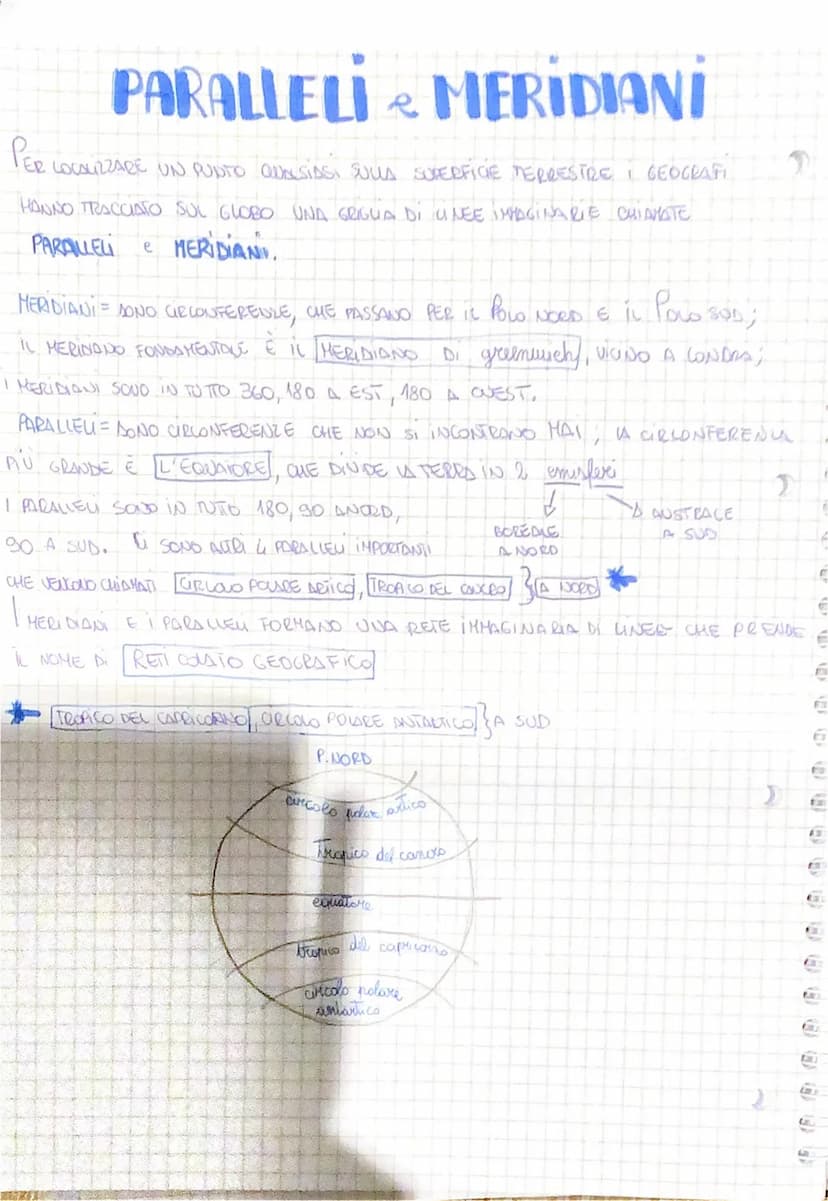 PARALLELI e MERIDIANI
PER LOCALIZZARE UN PUNTO QUALSIASI SULLA SUPERFICIE TERRESTRE I GEOGRAFI
HANNO TRACCIATO SUL GLOBO UNA GRIGLIA DI LINEE IMMAGINARIE CHIAMATE
PARALLELI e MERIDIANI.
MERIDIANI = SONO CIRCONFERENZE, CHE PASSANO PER IL POLO NORD E IL POLO SUD;
IL MERIDIANO FONDAMENTALE È IL MERIDIANO DI greenwich, VICINO A LONDRA;
I MERIDIANI SONO IN TUTTO 360, 180 A EST, 180 A OVEST.
PARALLELI = SONO CIRCONFERENZE CHE NON SI INCONTRANO MAI; LA CIRCONFERENZA
PIÙ GRANDE È L'EQUATORE, CHE DIVIDE LA TERRA IN 2 emisferi
I PARALLELI SONO IN TUTTO 180, 90 A NORD,
BOREALE A NORD
AUSTRALE A SUD
90 A SUD. CI SONO ALTRI 4 PARALLELI IMPORTANTI
CHE VENGONO CHIAMATI CIRCOLO POLARE ARTICO, TROPICO DEL CANCRO } A NORD
I MERIDIANI E I PARALLELI FORMANO UNA RETE IMMAGINARIA DI LINEE CHE PRENDE
IL NOME DI RETICOLATO GEOGRAFICO
TROPICO DEL CAPRICORNO, CIRCOLO POLARE ANTARTICO } A SUD
P. NORD
circolo polare artico
Tropico del cancro
equatore
tropico del capricorno
circolo polare
antartico